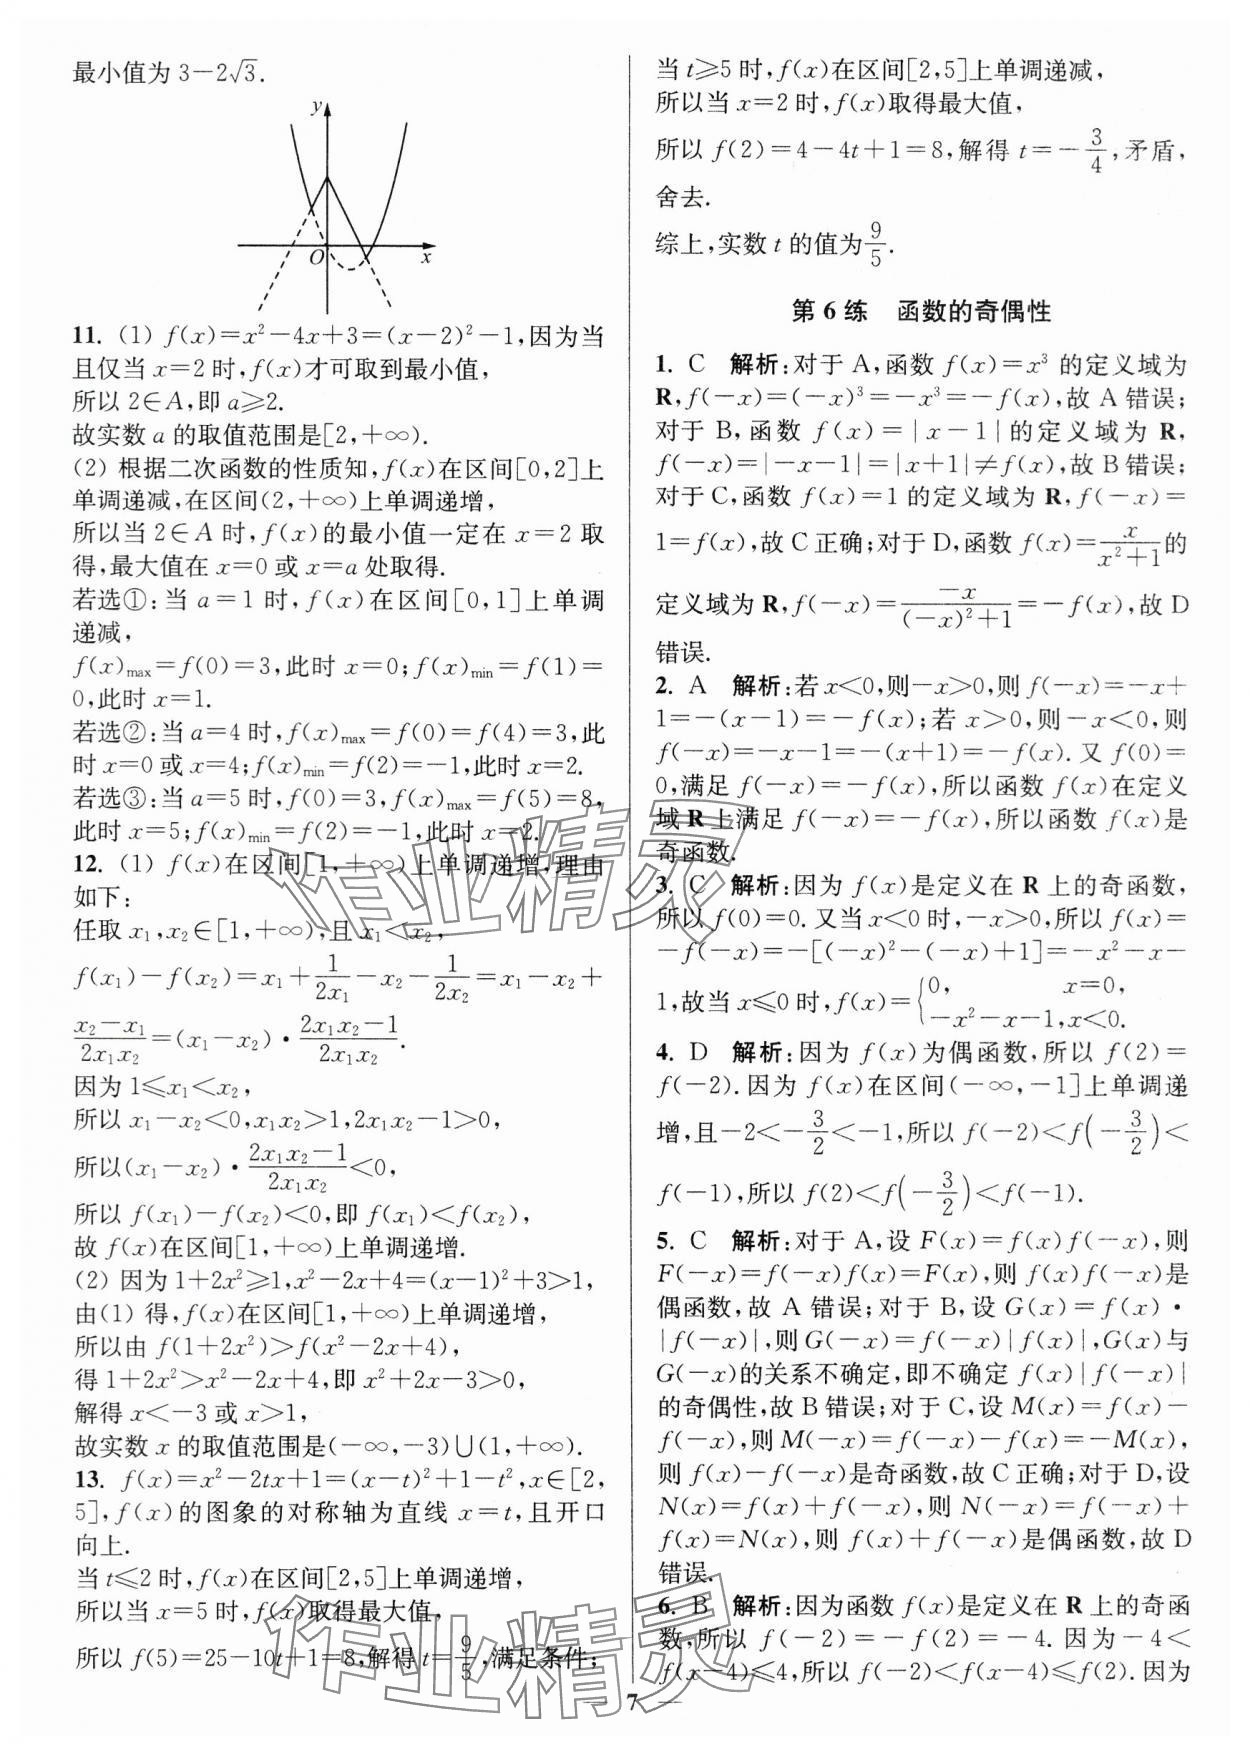 最小值为 3-2√3.
y
O
x
11. (1) f(x)=x²-4x+3=(x-2)²-1,因为当
且仅当 x=2 时,f(x)才可取到最小值,
所以 2∈A,即 a≥2.
故实数 a 的取值范围是[2,+∞).
(2) 根据二次函数的性质知,f(x)在区间[0,2]上
单调递减,在区间(2,+∞)上单调递增,
所以当 2∈A 时,f(x)的最小值一定在 x=2 取
得,最大值在 x=0 或 x=a 处取得.
若选①:当 a=1 时,f(x)在区间[0,1]上单调
递减,
f(x)max=f(0)=3,此时 x=0;f(x)min=f(1)=
0,此时 x=1.
若选②:当 a=4 时,f(x)max=f(0)=f(4)=3,此
时 x=0 或 x=4;f(x)min=f(2)=-1,此时 x=2.
若选③:当 a=5 时,f(0)=3,f(x)max=f(5)=8,
此时 x=5;f(x)min=f(2)=-1,此时 x=2.
12. (1) f(x)在区间[1,+∞)上单调递增,理由
如下:
任取 x₁,x₂∈[1,+∞),且 x₁<x₂,
f(x₁)-f(x₂)=x₁+1/(2x₁)-x₂-1/(2x₂)=x₁-x₂+
(x₂-x₁)/(2x₁x₂)=(x₁-x₂)·(2x₁x₂-1)/(2x₁x₂).
因为 1≤x₁<x₂,
所以 x₁-x₂<0,x₁x₂>1,2x₁x₂-1>0,
所以(x₁-x₂)·(2x₁x₂-1)/(2x₁x₂)<0,
所以 f(x₁)-f(x₂)<0,即 f(x₁)<f(x₂),
故 f(x)在区间[1,+∞)上单调递增.
(2) 因为 1+2x²≥1,x²-2x+4=(x-1)²+3>1,
由(1) 得,f(x)在区间[1,+∞)上单调递增,
所以由 f(1+2x²)>f(x²-2x+4),
得 1+2x²>x²-2x+4,即 x²+2x-3>0,
解得 x<-3 或 x>1,
故实数 x 的取值范围是(-∞,-3)∪(1,+∞).
13. f(x)=x²-2tx+1=(x-t)²+1-t²,x∈[2,
5],f(x)的图象的对称轴为直线 x=t,且开口
向上.
当 t≤2 时,f(x)在区间[2,5]上单调递增,
所以当 x=5 时,f(x)取得最大值,
所以 f(5)=25-10t+1=8,解得 t=9/5,满足条件;
当 t≥5 时,f(x)在区间[2,5]上单调递减,
所以当 x=2 时,f(x)取得最大值,
所以 f(2)=4-4t+1=8,解得 t=-3/4,矛盾,
舍去.
综上,实数 t 的值为9/5.
第 6 练 函数的奇偶性
1. C 解析:对于 A,函数 f(x)=x³ 的定义域为
R,f(-x)=(-x)³=-x³=-f(x),故 A 错误;
对于 B,函数 f(x)=|x-1|的定义域为 R,
f(-x)=|-x-1|=|x+1|≠f(x),故 B 错误;
对于 C,函数 f(x)=1 的定义域为 R,f(-x)=
1=f(x),故 C 正确;对于 D,函数 f(x)=x/(x²+1)的
定义域为 R,f(-x)=-x/((-x)²+1)=-f(x),故 D
错误.
2. A 解析:若 x<0,则-x>0,则 f(-x)=-x+
1=-(x-1)=-f(x);若 x>0,则-x<0,则
f(-x)=-x-1=-(x+1)=-f(x).又 f(0)=
0,满足 f(-x)=-f(x),所以函数 f(x)在定义
域 R 上满足 f(-x)=-f(x),所以函数 f(x)是
奇函数.
3. C 解析:因为 f(x)是定义在 R 上的奇函数,
所以 f(0)=0. 又当 x<0 时,-x>0,所以 f(x)=
-f(-x)=-[(-x)²-(-x)+1]=-x²-x-
1,故当 x≤0 时,f(x)={0, x=0,
-x²-x-1,x<0.
4. D 解析:因为 f(x)为偶函数,所以 f(2)=
f(-2).因为 f(x)在区间(-∞,-1]上单调递
增,且-2<-3/2<-1,所以 f(-2)<f(-3/2)<
f(-1),所以 f(2)<f(-3/2)<f(-1).
5. C 解析:对于 A,设 F(x)=f(x)f(-x),则
F(-x)=f(-x)f(x)=F(x),则 f(x)f(-x)是
偶函数,故 A 错误;对于 B,设 G(x)=f(x)·
|f(-x)|,则 G(-x)=f(-x)|f(x)|,G(x)与
G(-x)的关系不确定,即不确定 f(x)|f(-x)|
的奇偶性,故 B 错误;对于 C,设 M(x)=f(x)-
f(-x),则 M(-x)=f(-x)-f(x)=-M(x),
则 f(x)-f(-x)是奇函数,故 C 正确;对于 D,设
N(x)=f(x)+f(-x),则 N(-x)=f(-x)+
f(x)=N(x),则 f(x)+f(-x)是偶函数,故 D
错误.
6. B 解析:因为函数 f(x)是定义在 R 上的奇函
数,所以 f(-2)=-f(2)=-4. 因为-4<
f(x-4)≤4,所以 f(-2)<f(x-4)≤f(2).因为
作业精灵
作业精灵
— 7 —